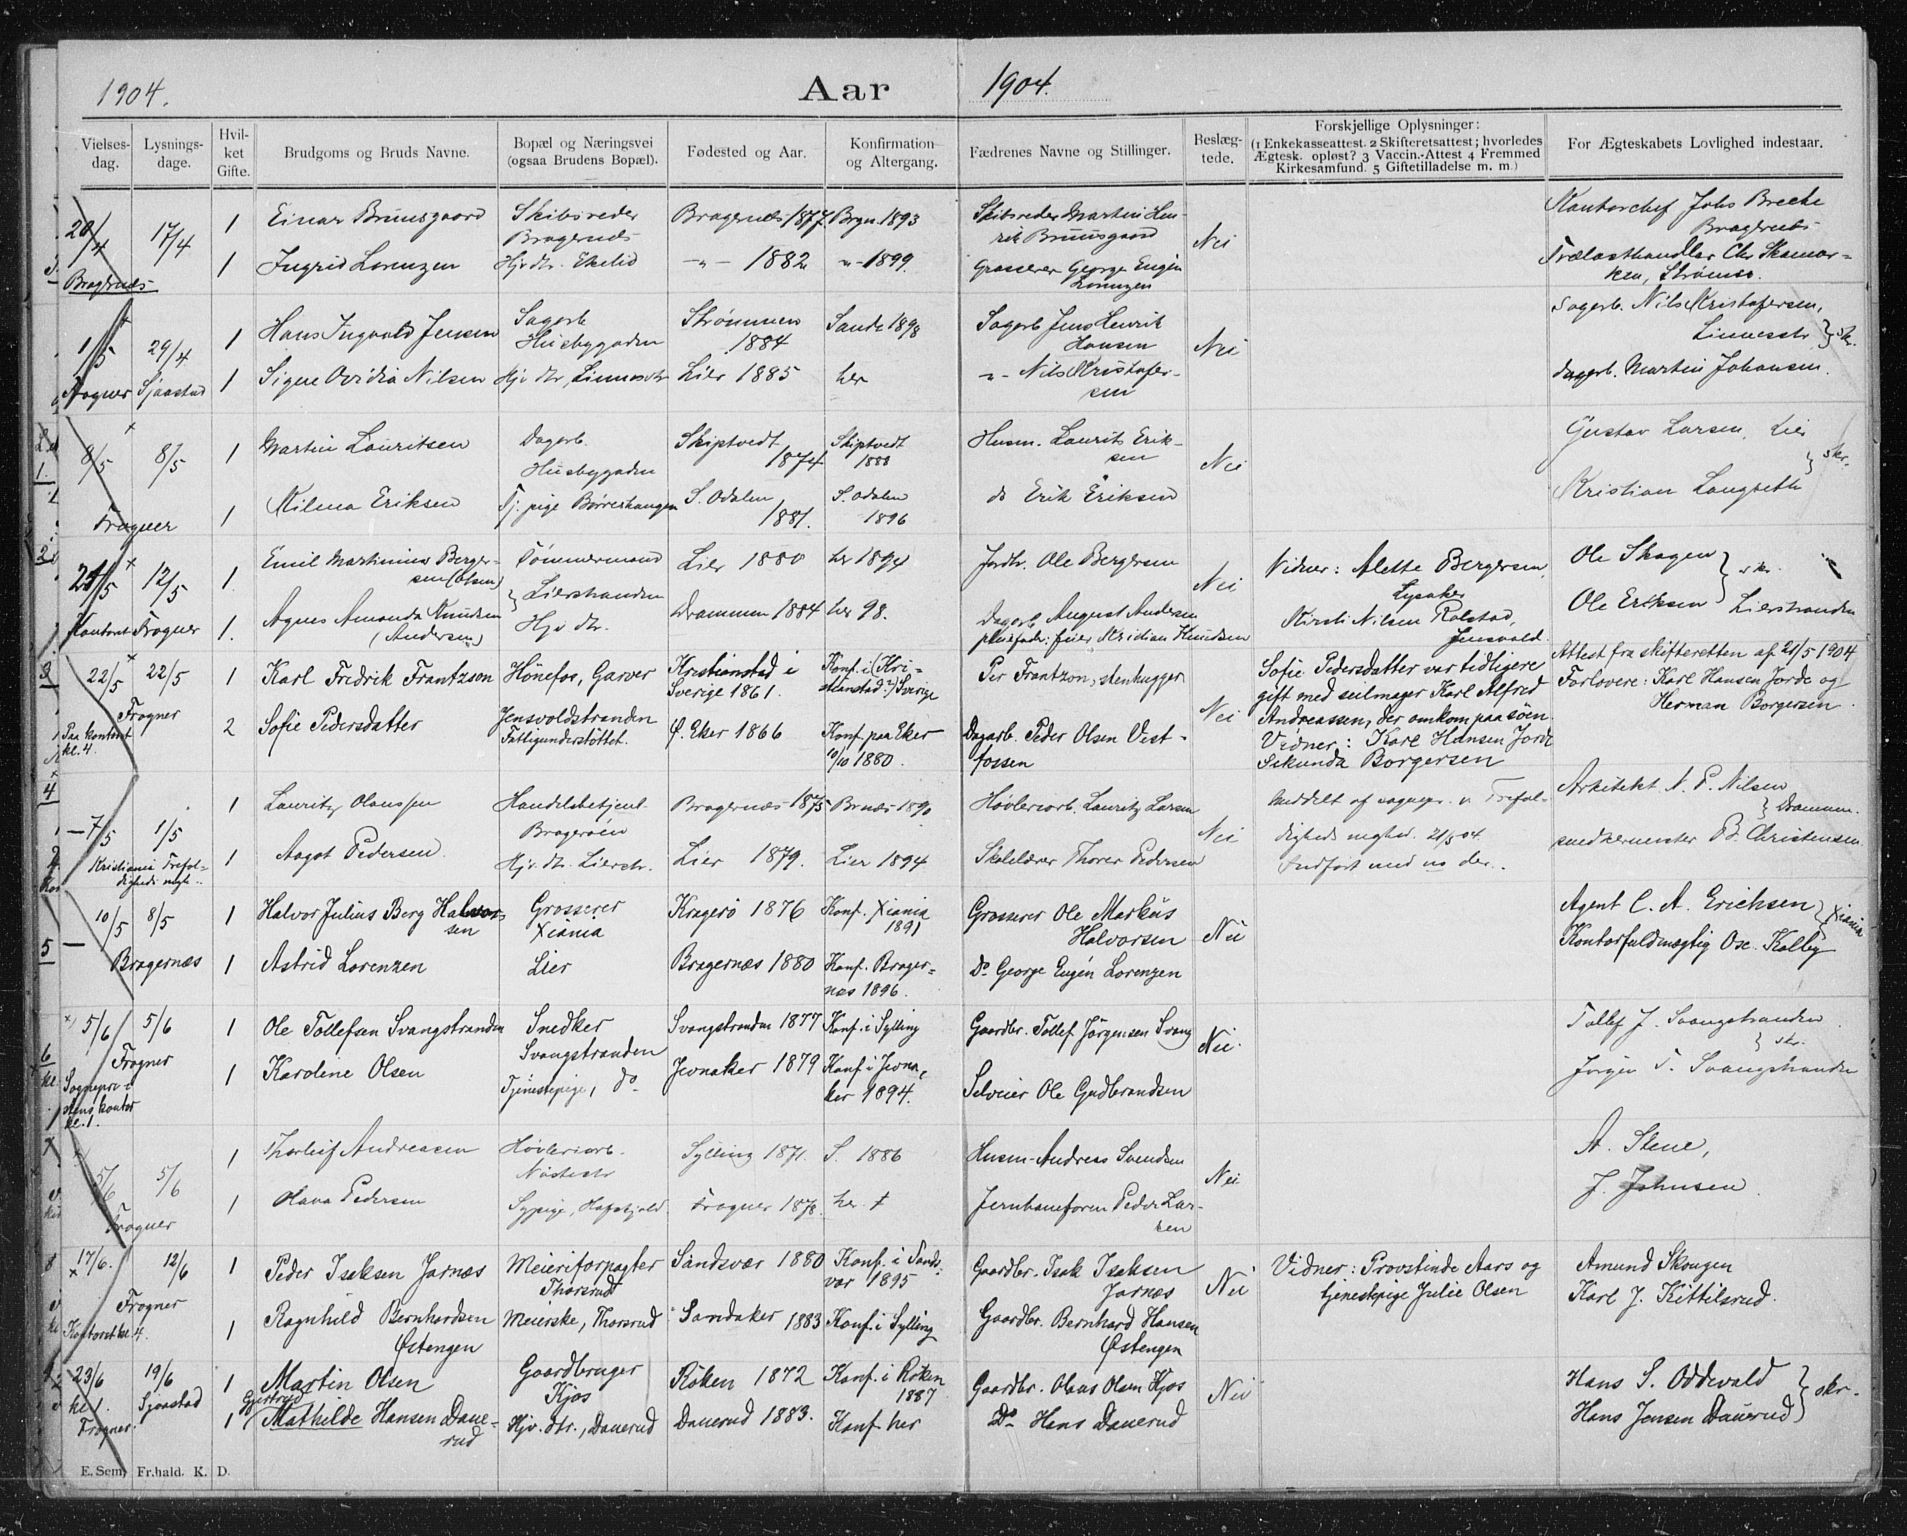 1904.
Aar 1904.
Vielses-dag. Lysnings-dage. Hvil-ket Gifte. Brudgoms og Bruds Navne. Bopæl og Næringsvei (ogsaa Brudens Bopæl). Fødested og Aar. Konfirmation og Altergang. Fædrenes Navne og Stillinger. Beslæg-tede. Forskjellige Oplysninger: (1 Enkekasseattest. 2 Skifteretsattest; hvorledes Ægtesk. opløst? 3 Vaccin.-Attest 4 Fremmed Kirkesamfund. 5 Giftetilladelse m. m.) For Ægteskabets Lovlighed indestaar.
20/4 17/4 1 Einar Bruusgaard Skibsreder Bragernes 1877 Brgn. 1893 Skibsreder Martin Hen-
Bragernes rik Bruusgaard Nei
1 Ingrid Lorenzen Hjv. dtr. Ekelid -"- 1882 "- 1899. Grosserer George Eugen
Bragernes Lorenzen
Kontorchef Johs Breche
Bragernes
Trælasthandler Chr Skamar-
ken, Strømsø.
1/5 29/4 1 Hans Ingvald Jensen Sagarb. Strømmen Sande 1898 Sagarb Jens Henrik
Husbygaden 1884 Hansen Nei
Frogner Sjaastad 1 Signe Ovidia Nilsen Hjv dtr, Linnesstr Lier 1885 her "- Nils Kristofer-
sen
Sagarb. Nils Kristofersen,
Linnesstr } skr.
Dagarb. Martin Johansen.
8/5 8/5 1 Martin Lauritsen Dagarb. Skiptvedt Skiptvedt Husm. Laurits Erik-
Husbygaden 1874 1888 sen Nei
Frogner 1 Milma Eriksen Tj. pige Børreshaugen S. Odalen S. Odalen do Erik Eriksen
1881. 1896
Gustav Larsen, Lier
} skr.
Kristian Langseth
21/5 12/5 1. Emil Martinius Berger- Tømmermand Lier 1880 her 1894 Jordbr. Ole Bergersen
sen (Olsen) } Lierstranden Nei
Kontoret Frogner 1. Agnes Amanda Knudsen Hjv dtr. Drammen 1884 her 98. Dagarb August Andersen
(Andersen) pleiefader: feier Kristian Knudsen
Vidner: Alette Bergersen,
Lysaker
Kirsti Nilsen Rolstad,
Jensvold.
Ole Skogen } skr.
Ole Eriksen Lierstranden
22/5 22/5 1 Karl Fredrik Frantzson Hönefos, Garver Kristianstad i Konf. i (Kri- Per Frantzon, stenhugger
Sverige 1861. stianstad?) Sverige
Frogner 2 Sofie Pedersdatter Jensvoldstranden Ø. Eker 1866 Konf. paa Eker Dagarb. Peder Olsen Vest- Nei
Paa kontoret kl. 4. Fattigunderstöttet. 10/10 1880. fossen
Sofie Pedersdatter var tidligere
gift med seilmager Karl Alfred
Andreassen, der omkom paa söen.
Vidner: Karl Hansen Jorde
Sekunda Borgersen
Attest fra skifteretten af 21/5 1904
Forlovere: Karl Hansen Jorde og
Herman Borgersen.
7/5 1/5 1 Lauritz Olanssen Handelsbetjent Bragernæs 1875 Brnæs 1890 Høvleriarb. Lauritz Larsen
Bragerøen Nei
Kristiania Trefol-
digheds mgh. 1 Aagot Pedersen. Hjv. dtr. Lierstr. Lier 1879. Lier 1894 Skolelærer Thorer Pedersen
Meddelt af sognepr. v. Trefol-
digheds meghed. 21/5 04.
Indført med no der.
Arkitekt N. P. Nilsen
} Drammen.
snedkermester Christensen
10/5 8/5 1 Halvor Julius Berg Halvor- Grosserer Kragerö 1876 Konf. Xiania Grosserer Ole Markus
sen Xiania 1891 Halvorsen Nei
Bragernæs 1 Astrid Lorenzen Lier Bragernæs 1880 Konf. Brager- Do George Eugén Lorenzen
næs 1896.
Agent C. A. Erichsen } Xiania
Kontorfuldmægtig Osc. Kolby
5/6 5/6 1 Ole Tollefsen Svangstranden Snedker Svangstranden 1877 Konf. i Sylling Gaardbr. Tollef Jörgensen Svang
Frogner Svangstranden Nei.
Sognepre-
stens kontor
kl. 1. 1 Karoline Olsen Tjenestepige, do Jevnaker 1879 Konf i Jevna- Selveier Ole Gudbrandsen
ker 1894.
Tollef J. Svangstranden
} skr.
Jörgen T. Svangstranden
5/6 5/6 1 Thorleif Andreassen Høvleriarb. Sylling 1871. S. 1886 Husm. Andreas Svendsen
Nøstestr Nei
Frogner 1 Olava Pedersen Sypige, Frogner 1878 her. Jernbaneformn Peder Lar-
sen
A. Stene,
J. Johnsen.
17/6. 12/6 1 Peder Isaksen Jarnæs Meieriforpagter Sandsvær 1880 Konf. i Sands- Gaardbr. Isak Isaksen
Thorsrud vær 1895 Jarnæs Nei
Frogner
Kontoret kl. 4. 1 Ragnhild Bernhardsen Meierske, Thorsrud Sandaker 1883 Konf. i Sylling Gaardbr. Bernhard Hansen
Østengen Østengen
Vidner: Provstinde Aars og
tjenestepige Julie Olsen
Amund Skougen
Karl J. Kittilsrud.
23/6 19/6 1 Martin Olsen Gaardbruger Röken 1872 Konf. i Röken Gaardbr. Olaus Olsen Kjos
kl. 1. Sjaastad Kjos 1887 Nei
Frogner. 1 Gjertrud Mathilde Hansen Daue- Hjv. dtr., Dauerud Dauerud 1883. Konf. her Do Hans Dauerud
rud
Hans S. Oddevald } skr.
Hans Jensen Dauerud
E. Sem, Fr.hald. K. D.